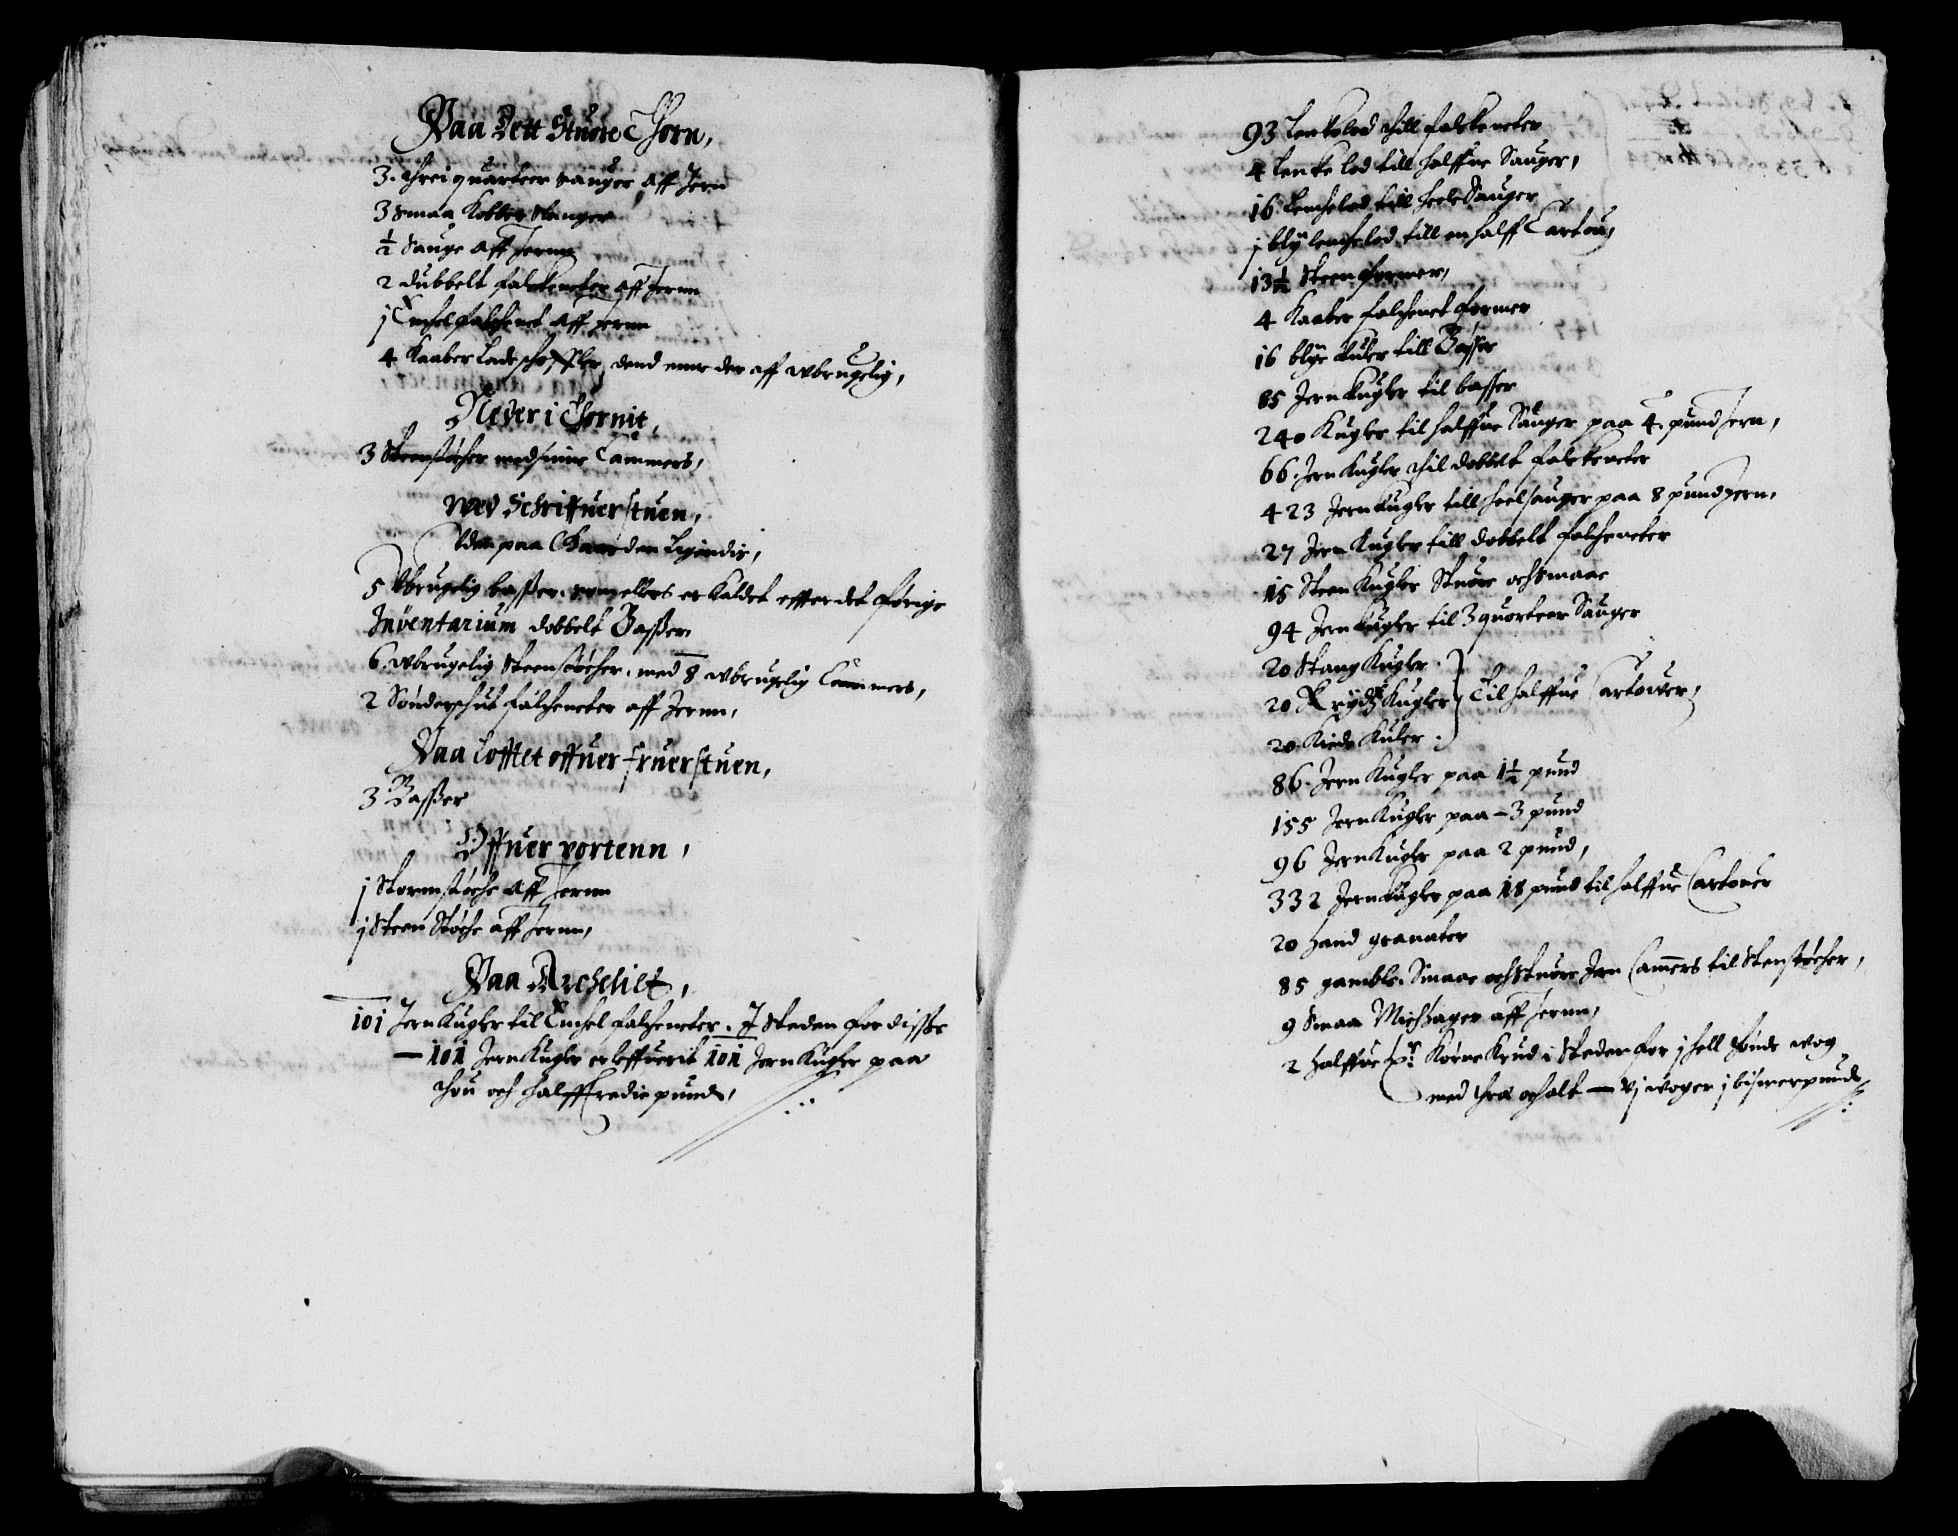 Paa Dett Stuore Thorn,
3. threi quarteer Sanger aff Jern
3 Smaa Kobber Slanger
½ Sange aff Jernn
2 dubbelt falckeneter aff Jernn
j Enchel falchenet aff Jernn
4 Kaaber Ladeschoffler, dend eene der aff wbrugelig,
Neder i Thornit,
3 Steenstøcher med sinne Cammers,
Wed Schriffuerstuen,
Vden paa Gaarden Ligindis,
5 Vbrugelig basser. som ellers er kaldet effter det forige
Inventarium dobbelt Basser
6. wbrugelig Steenstøcher. med 8 wbrugelig Cammers,
2 Sønderschut falcheneter aff Jernn,
Paa Lofftet offuer Fruerstuen,
3 Basser
Offuer portenn,
j Stormstøche aff Jernn
j Steen Støche aff Jernn,
Paa Archeliet,
101 Jern Kugler til Enchel falcheneter. J Steden for disse
— 101 Jern Kugler er leffuerit 101 Jern Kugler paa
thou och halff tredie punds,
93 Lenkelod thill falckeneter
4 Lenke lod till halffue Sanger,
16 Lenchelod till heele Sanger
j blÿ lenchelod till en halff Cartou,
13½ Steen former,
4 Kaaber falchenet former
16 blÿe Kuler till Basser
85 Jern Kugler til basser
240 Kugler til halffue Sanger paa 4. pund Jern,
66. Jern Kugler thil dobbelt falckeneter
423 Jern Kugler till heel Sanger paa 8 pund Jern,
27 Jern Kugler till dobbelt falcheneter
15 Steen Kugler Stuore och Smaae
94 Jern Kugler til 3 quorteer Sanger
20 Stang Kugler.
20 Krydtz Kugler } Til halffue Cartower,
20. Kiede Kuler.
86. Jern Kugler paa 1½ pund
155 Jern Kugler paa — 3 pund
96 Jern Kugler paa 2 pund,
332 Jern Kugler paa 18 pund til halffue Cartouer
20 Hand granater
85 gamble. Smaae och Stuore Jern Camers til Stenstøcher,
9 Smaa aff Jernn,
2 Halffue Korne Krud i Steden for j hell tønde wog
med thræ och alt — vj woger j bismerpunds